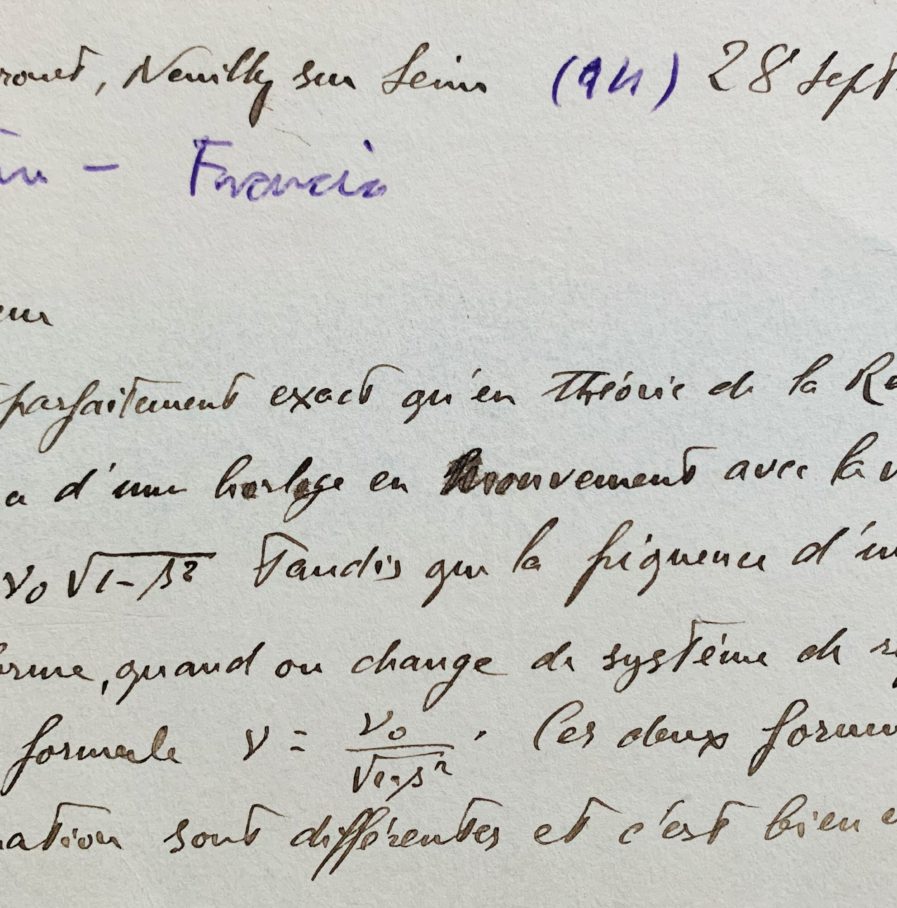 Neuilly sur Seine (94) 28 Sept
— Francia
parfaitement exact qu'en théorie de la R
a d'une horloge en mouvement avec la v
ν₀ √1-β² Tandis que la fréquence d'u
orme, quand on change de système de r
formule ν = ν₀/√1-β². Ces deux form
ation sont différentes et c'est bien